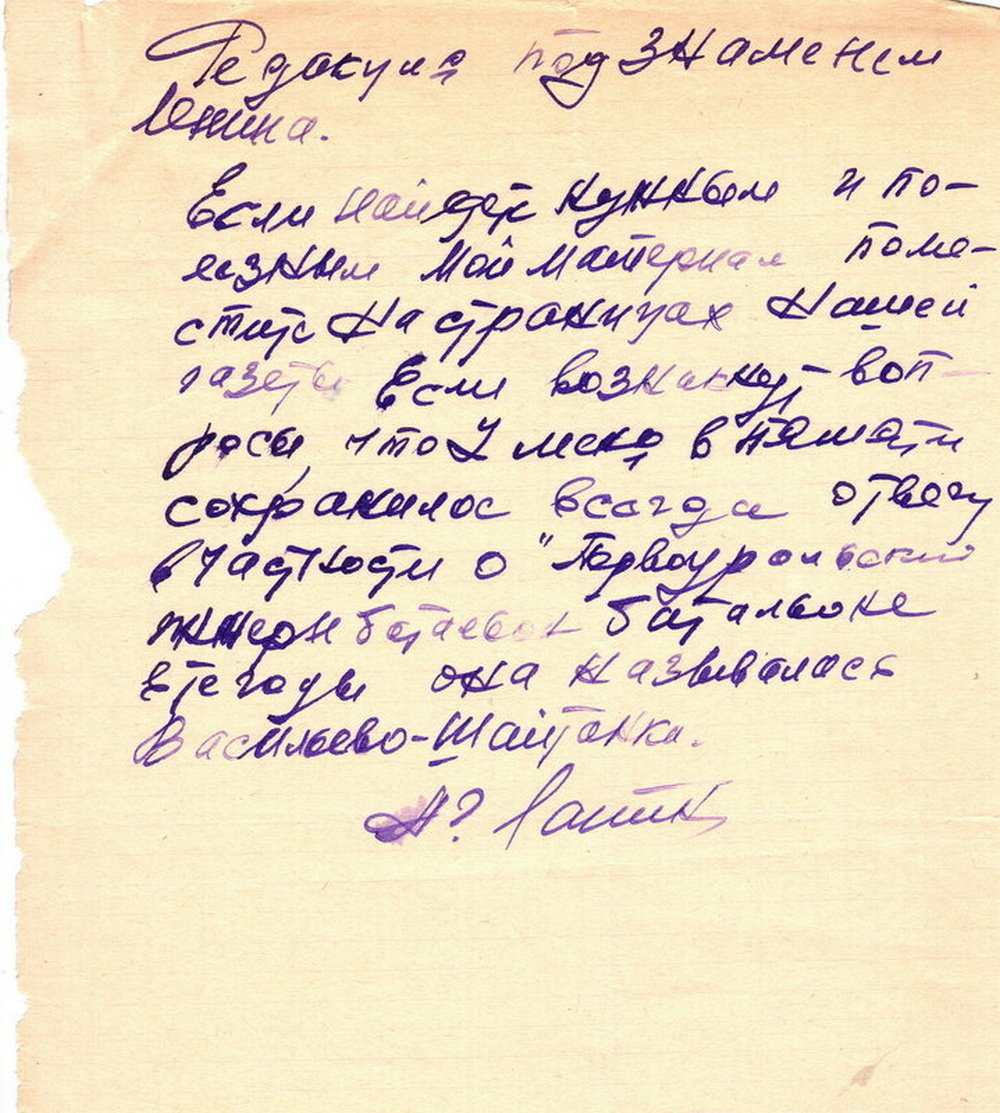 Редакция под знаменем
Ленина.
Если найдете нужным и по-
лезным мой материал поме-
стите на страницах нашей
газеты Если возникнут воп-
росы, что у меня в памяти
сохранилос всегда отвечу
в частности о "Первоуральский
баталионе
в те годы она называлась
Васильево-Шайтанка.